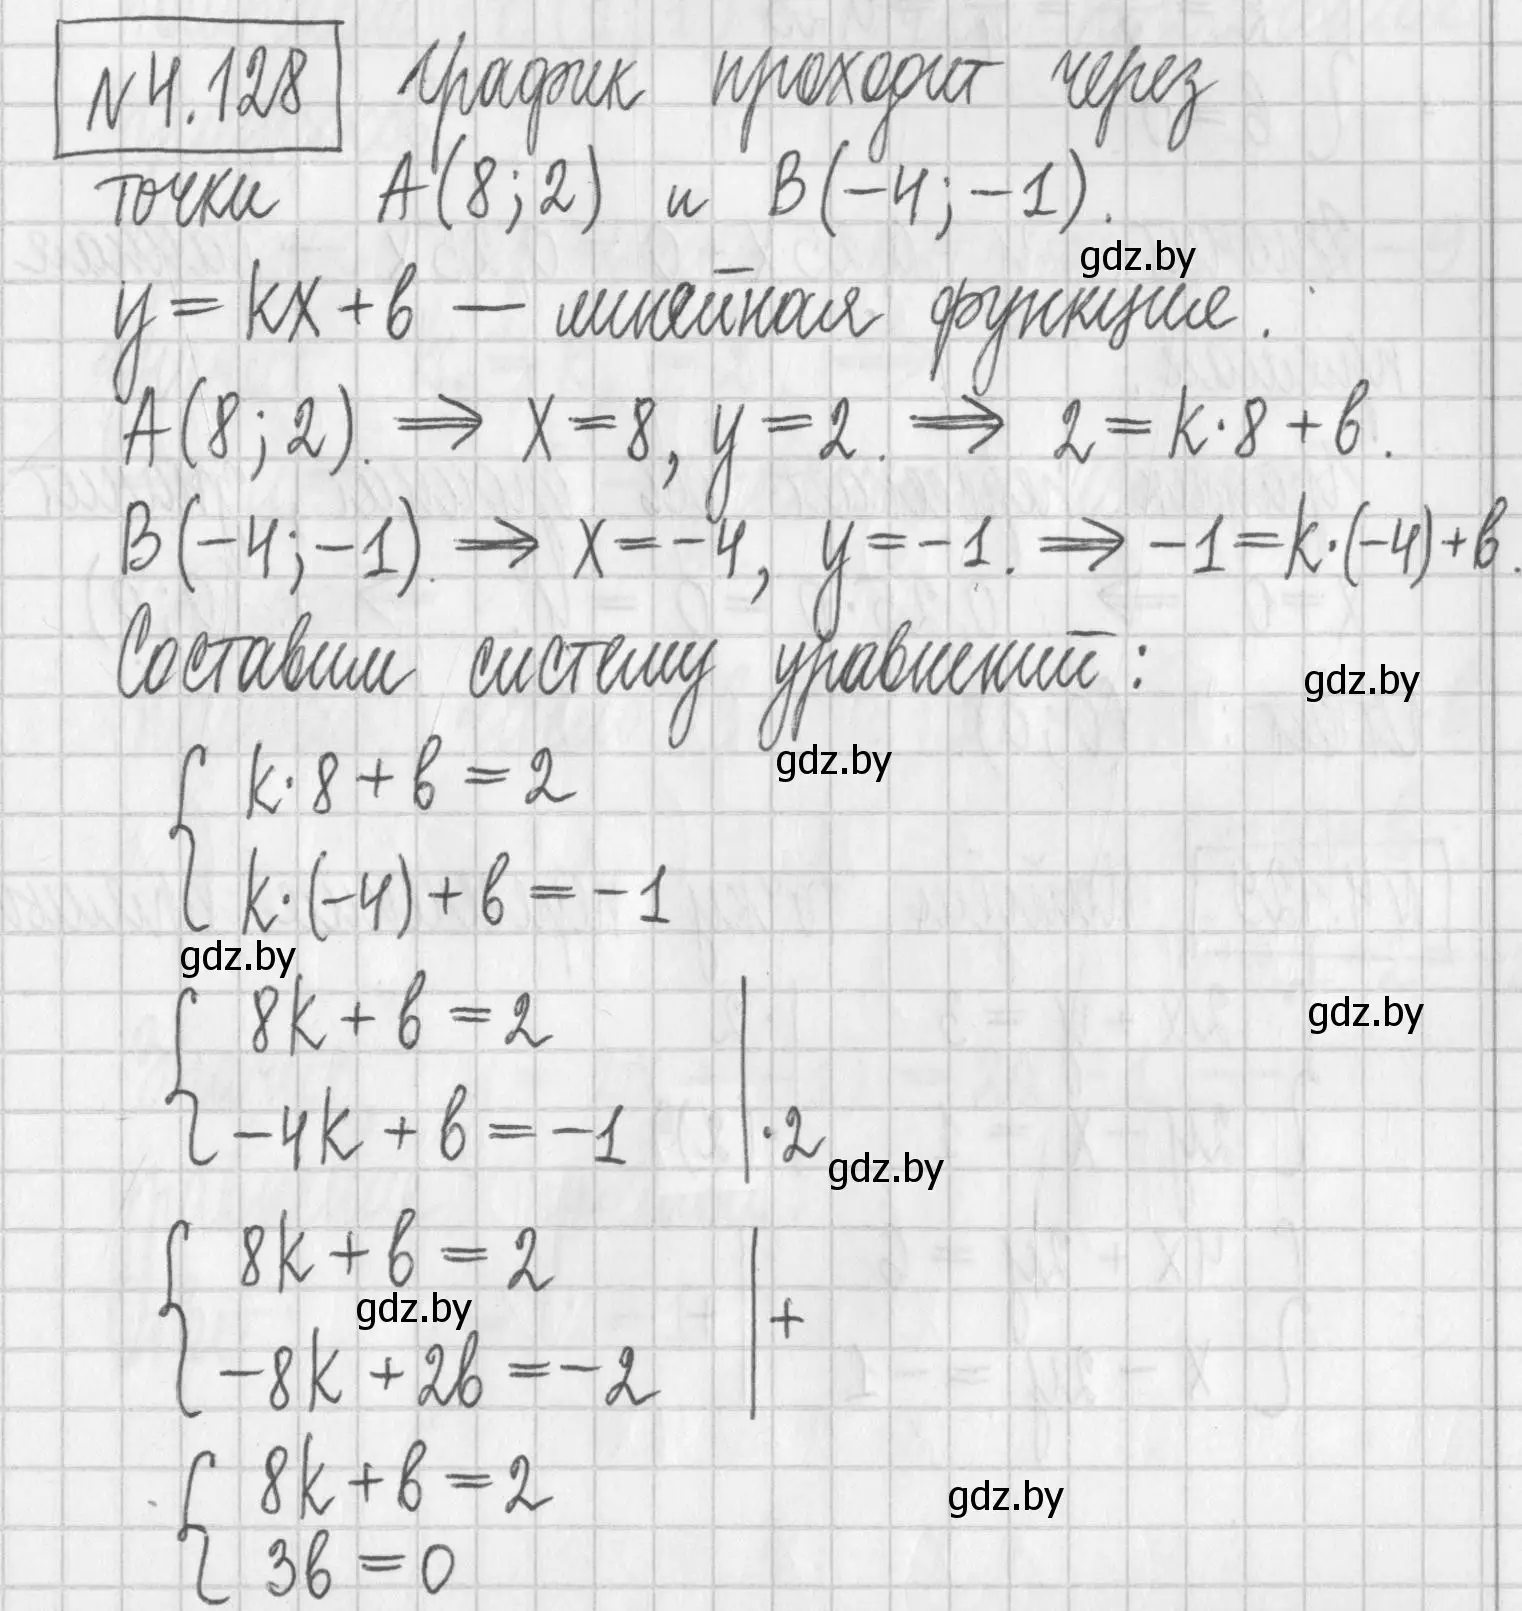 №4.128 График проходит через
точки A(8;2) и B(-4;-1).
gdz.by
y = kx + b — линейная функция.
A(8;2). ⟹ x = 8, y = 2. ⟹ 2 = k·8 + b.
B(-4;-1). ⟹ x = -4, y = -1. ⟹ -1 = k·(-4) + b.
Составим систему уравнений:
gdz.by
gdz.by
{ k·8 + b = 2
k·(-4) + b = -1
gdz.by
{ 8k + b = 2 |
gdz.by
-4k + b = -1 | ·2
gdz.by
{ 8k + b = 2 | +
gdz.by
-8k + 2b = -2
{ 8k + b = 2
gdz.by
3b = 0